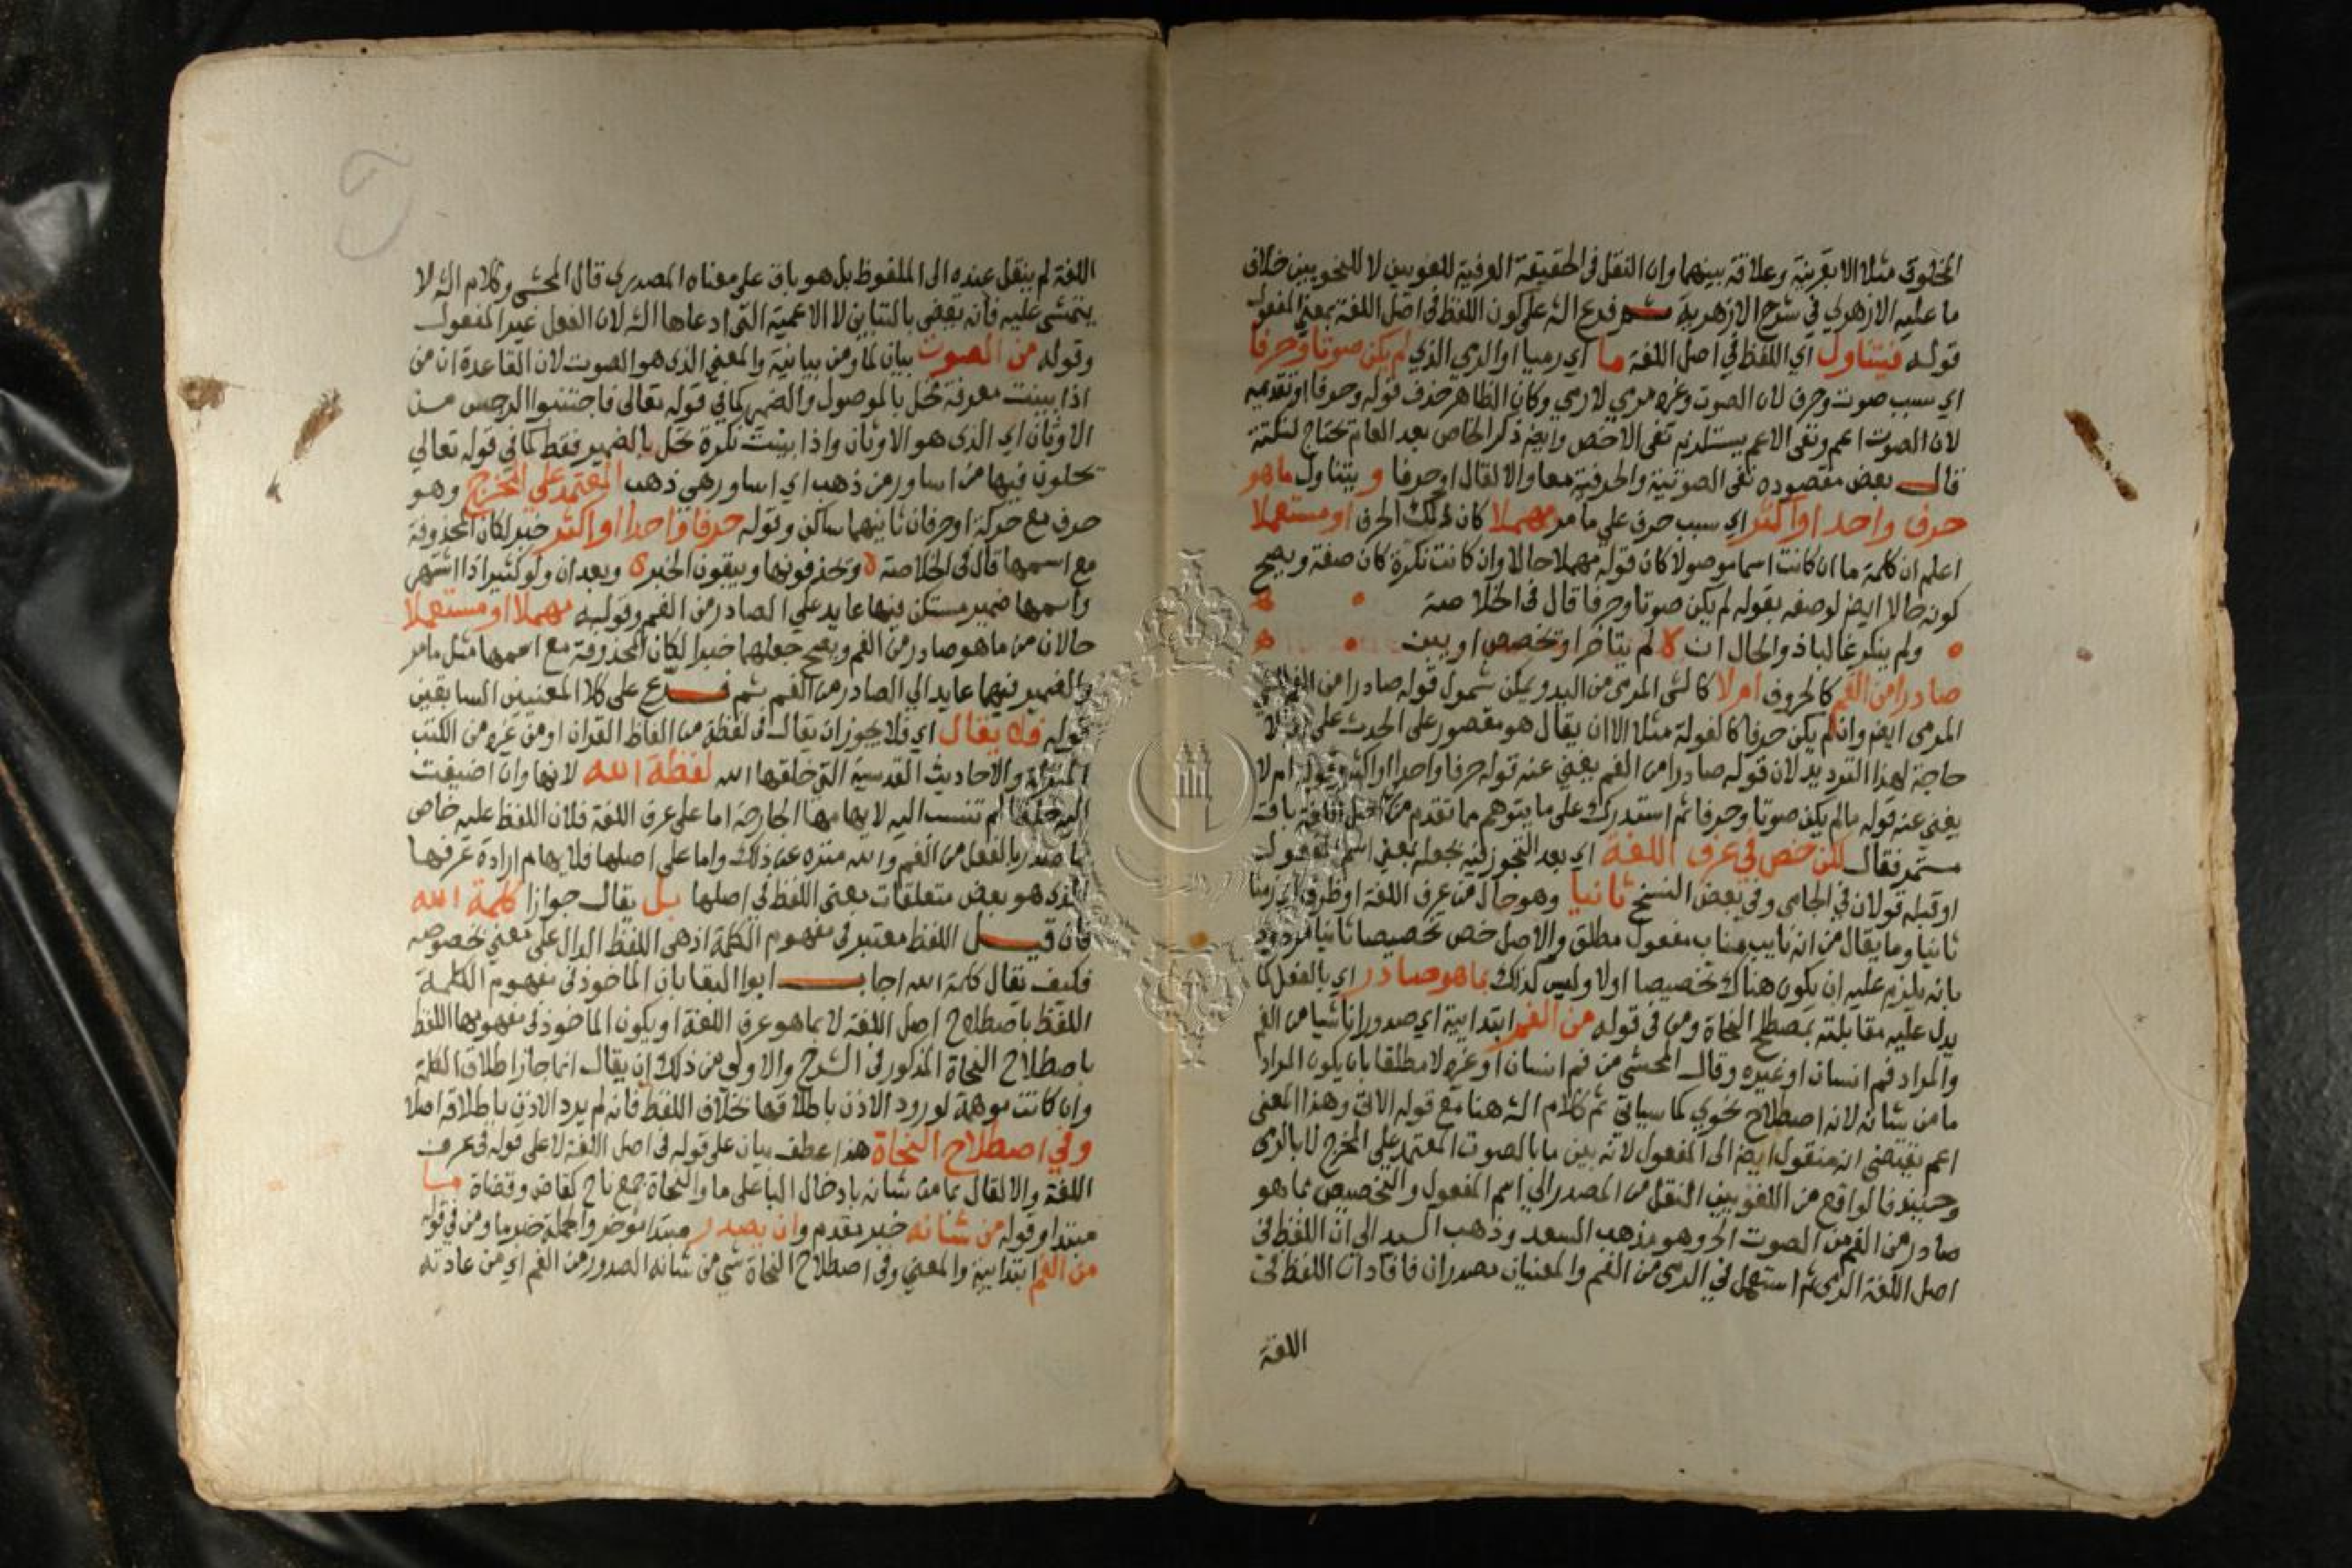 المخلوق مثلا الا بقرينة وعلاقة بينهما وان النقل في الحقيقة العرفية للغويين لا للنحويين خلاف
ما عليه الازهري في شرح الازهرية ثم فرع الش على كون اللفظ في اصل اللغة بمعنى المفعول
قوله فيتناول اي اللفظ في اصل اللغة ما اي رميا او الرمي الذي لم يكن صوتا وحرفا
اي سبب صوت وحرف لان الصوت وغره مرمي لا رمي وكان الظاهر حذف قوله وحرفا او تقديمه
لان الصوت اعم ونفى الاعم يستلزم نفى الاخص وايض ذكر الخاص بعد العام يحتاج لنكتة
قال بعض مقصوده نفى الصوتية والحرفية معا والا لقال او حرفا و يتناول ما هو
حرف واحد او اكثر اي سبب حرف علي ما مر مهملا كان ذلك الحرف او مستعملا
اعلم ان كلمة ما ان كانت اسما موصولا كان قوله مهملا حالا وان كانت نكرة كان صفة ويصح
كونه حالا ايض لوصفه بقوله لم يكن صوتا وحرفا قال في الخلاصة
ولم ينكر غالبا ذو الحال ان لم يتاخر او تخصص او يبن
صادرا من الفم كالحروف ام لا كالشى المرمى من اليد ويمكن شمول قوله صادرا من الفم للشى
المرمى ايض وان لم يكن حرفا كالفولة مثلا الا ان يقال هو مقصور على الحدث على انه لا
حاجة لهذا الترديد لان قوله صادرا من الفم يغني عنه قوله حرفا واحدا او اكثر وقوله ام لا
يغني عنه قوله ما لم يكن صوتا وحرفا ثم استدرك على ما يتوهم مما تقدم من اصل اللغة باقة
مستمر فقال لكن خص في عرف اللغة اي بعد التجوز فيه بجعله بمعنى اسم المفعول
او قبله قولان في الجامى وفي بعض النسخ ثانيا وهو حال من عرف اللغة او ظرف اي زمنا
ثانيا وما يقال من انه نايب مناب مفعول مطلق والاصل خص تخصيصا ثانيا مردود
بانه يلزم عليه ان يكون هناك تخصيصا اولا وليس كذلك بما هو صادر اي بالفعل كما
يدل عليه مقابلته بمصطلح النحاة ومن في قوله من الفم ابتدايية اي صدورا ناشيا من الفم
والمراد فم انسان او غيره وقال المحشي من فم انسان او غره لا مطلقا بان يكون المراد
ما من شانه لانه اصطلاح نحوي كما سياتي ثم كلام الش هنا مع قوله الاتى وهذا المعنى
اعم يقتضى انه منقول ايض الى المفعول لانه بين ما بالصوت المعتمد على المخرج لا بالرمى
وحينيذ فالواقع من اللغويين النقل من المصدر الي اسم المفعول والتخصيص بما هو
صادر من الفم من الصوت الخ وهو مذهب السعد وذهب السيد الى ان اللفظ في
اصل اللغة الرمى ثم استعمل في الرمى من الفم والمعنيان مصدران فافاد ان اللفظ في
اللغة
اللغة لم ينقل عنده الى الملفوظ بل هو باق على معناه المصدرى قال المحشى وكلام الش لا
يتمشى عليه فانه يقضى بالتباين لا الاعمية التى ادعاها الش لان الفعل غير المفعول
وقوله من الصوت بيان لما ومن بيانية والمعنى الذى هو الصوت لان القاعدة ان من
اذا بينت معرفة تحل بالموصول والضمير كما في قوله تعالى فاجتنبوا الرجس من
الاوثان اي الذى هو الاوثان واذا بينت نكرة تحل بالضمير فقط كما في قوله تعالي
تحلون فيها من اساور من ذهب اي اساور هي ذهب المعتمد علي المخرج وهو
حرف مع حركة او حرفان ثانيهما ساكن وقوله حرفا واحدا او اكثر خبر لكان المحذوفة
مع اسمها قال في الخلاصة ويحذفونها ويبقون الخبر وبعد ان ولو كثيرا ذا اشتهر
واسمها ضمير مستكن فيها عايد علي الصادر من الفم وقوله مهملا او مستعملا
حالان من ما هو صادر من الفم ويصح جعلهما خبرا لكان المحذوفة مع اسمها مثل ما مر
والضمير فيها عايد الي الصادر من الفم ثم فرع على كلا المعنيين السابقين
قوله فلا يقال اي فلا يجوز ان يقال في لفظة من الفاظ القران او من غره من الكتب
المنزلة والاحاديث القدسية التى خلقها الله لفظة الله لانها وان اضيفت
اليه خلقا لم تنسب اليه لايهامها الجارحة اما على عرف اللغة فلان اللفظ عليه خاص
بما صدر بالفعل من الفم والله منزه عن ذلك واما على اصلها فلايهام ارادة عرفها
الذى هو بعض متعلقات معنى اللفظ في اصلها بل يقال جوازا كلمة الله
فان قيل اللفظ معتبر في مفهوم الكلمة اذ هى اللفظ الدال على معنى بخصوصه
فكيف يقال كلمة الله اجاب ابوا البقا بان الماخوذ في مفهوم الكلمة
اللفظ باصطلاح اصل اللغة لا بما هو عرف اللغة او يكون الماخوذ في مفهومها اللفظ
باصطلاح النحاة المذكور في الشرح والاولى من ذلك ان يقال انما جاز اطلاق الكلمة
وان كانت موهمة لورود الاذن باطلاقها بخلاف اللفظ فانه لم يرد الاذن باطلاقه اصلا
وفي اصطلاح النحاة هذا عطف بيان على قوله في اصل اللغة لا على قوله في عرف
اللغة والا لقال بما من شانه بادخال البا على ما والنحاة جمع ناح كقاض وقضاة ما
مبتدا وقوله من شانه خبر مقدم وان يصدر مبتدا موخر والجملة خبر ما ومن في قوله
من الفم ابتدايية والمعنى وفى اصطلاح النحاة شى من شانه الصدور من الفم اي من عادته